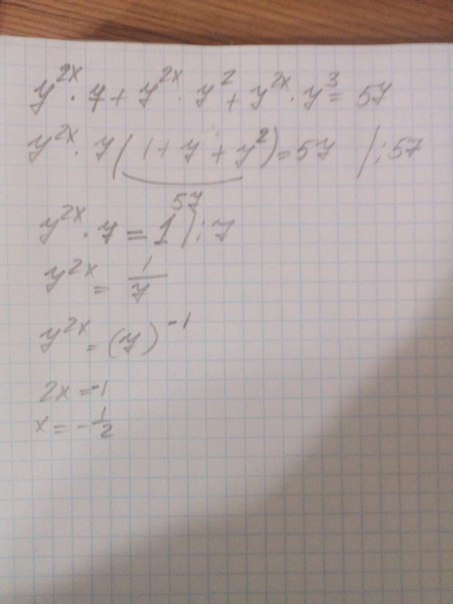 7²ˣ · 7 + 7²ˣ · 7² + 7²ˣ · 7³ = 57
7²ˣ · 7 (1 + 7 + 7²) = 57 /:57
57
7²ˣ · 7 = 1 /:7
7²ˣ = 1/7
7²ˣ = (7)⁻¹
2x = -1
x = -1/2